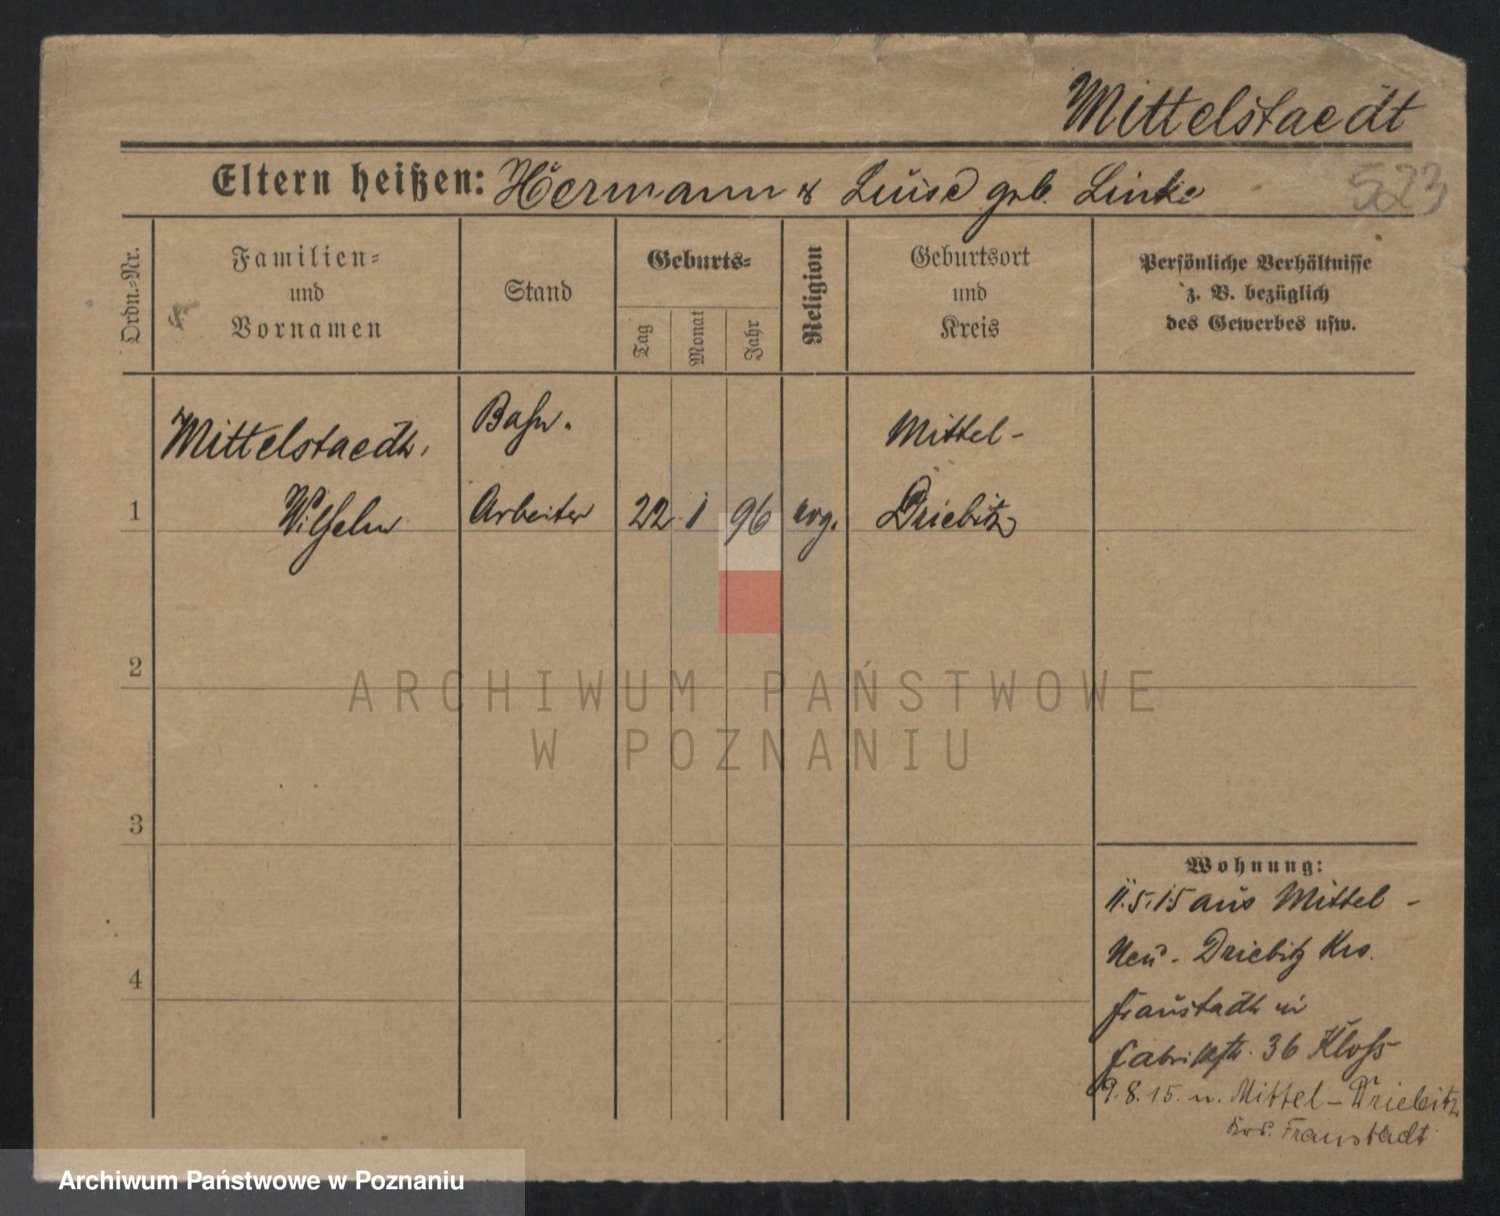 Mittelstaedt
Eltern heißen: Hermann & Luise geb. Linke
523
Ordn.-Nr.
Familien-
und
Vornamen
Stand
Geburts-
Tag
Monat
Jahr
Religion
Geburtsort
und
Kreis
Persönliche Verhältnisse
z. B. bezüglich
des Gewerbes usw.
Mittelstaedt,
Wilhelm
Bahn-
Arbeiter
1
22 1 96 evg.
Mittel-
Driebitz
2
ARCHIWUM PAŃSTWOWE
W POZNANIU
3
4
Wohnung:
11.5.15 aus Mittel-
Neu-Driebitz Krs.
Fraustadt in
Fabrikstr. 36 Kloss
9.8.15. n. Mittel-Driebitz
Krs. Fraustadt
Archiwum Państwowe w Poznaniu